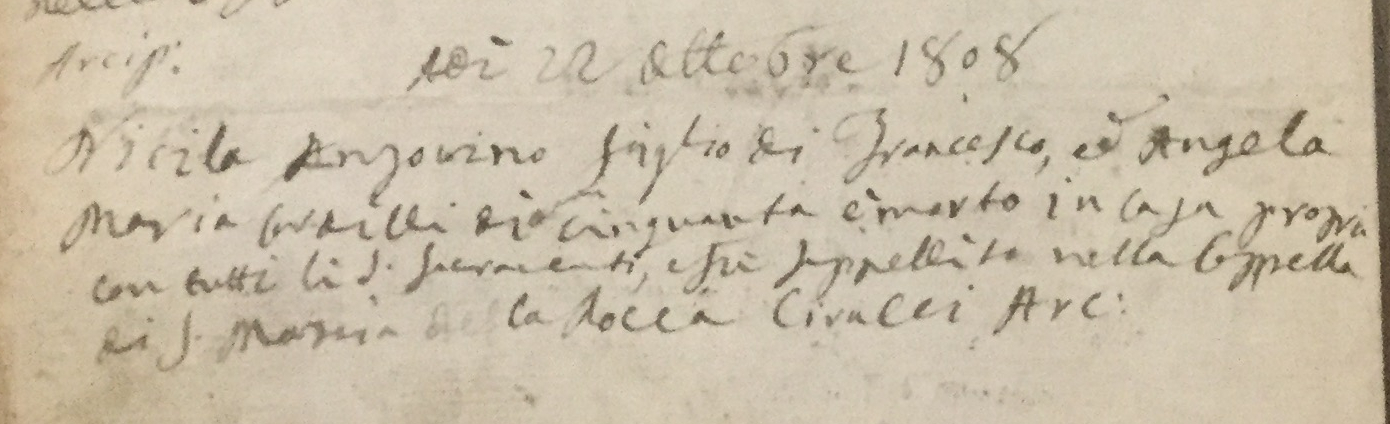 Arcip:
Adì 22 Ottobre 1808
Nicila Anzovino figlio di Francesco, ed Angela
Maria di cinquanta è morto in casa propria
con tutti li S. Sacramenti, e fù seppellito nella Cappella
di S. Maria della Rocca Civalli Arc: